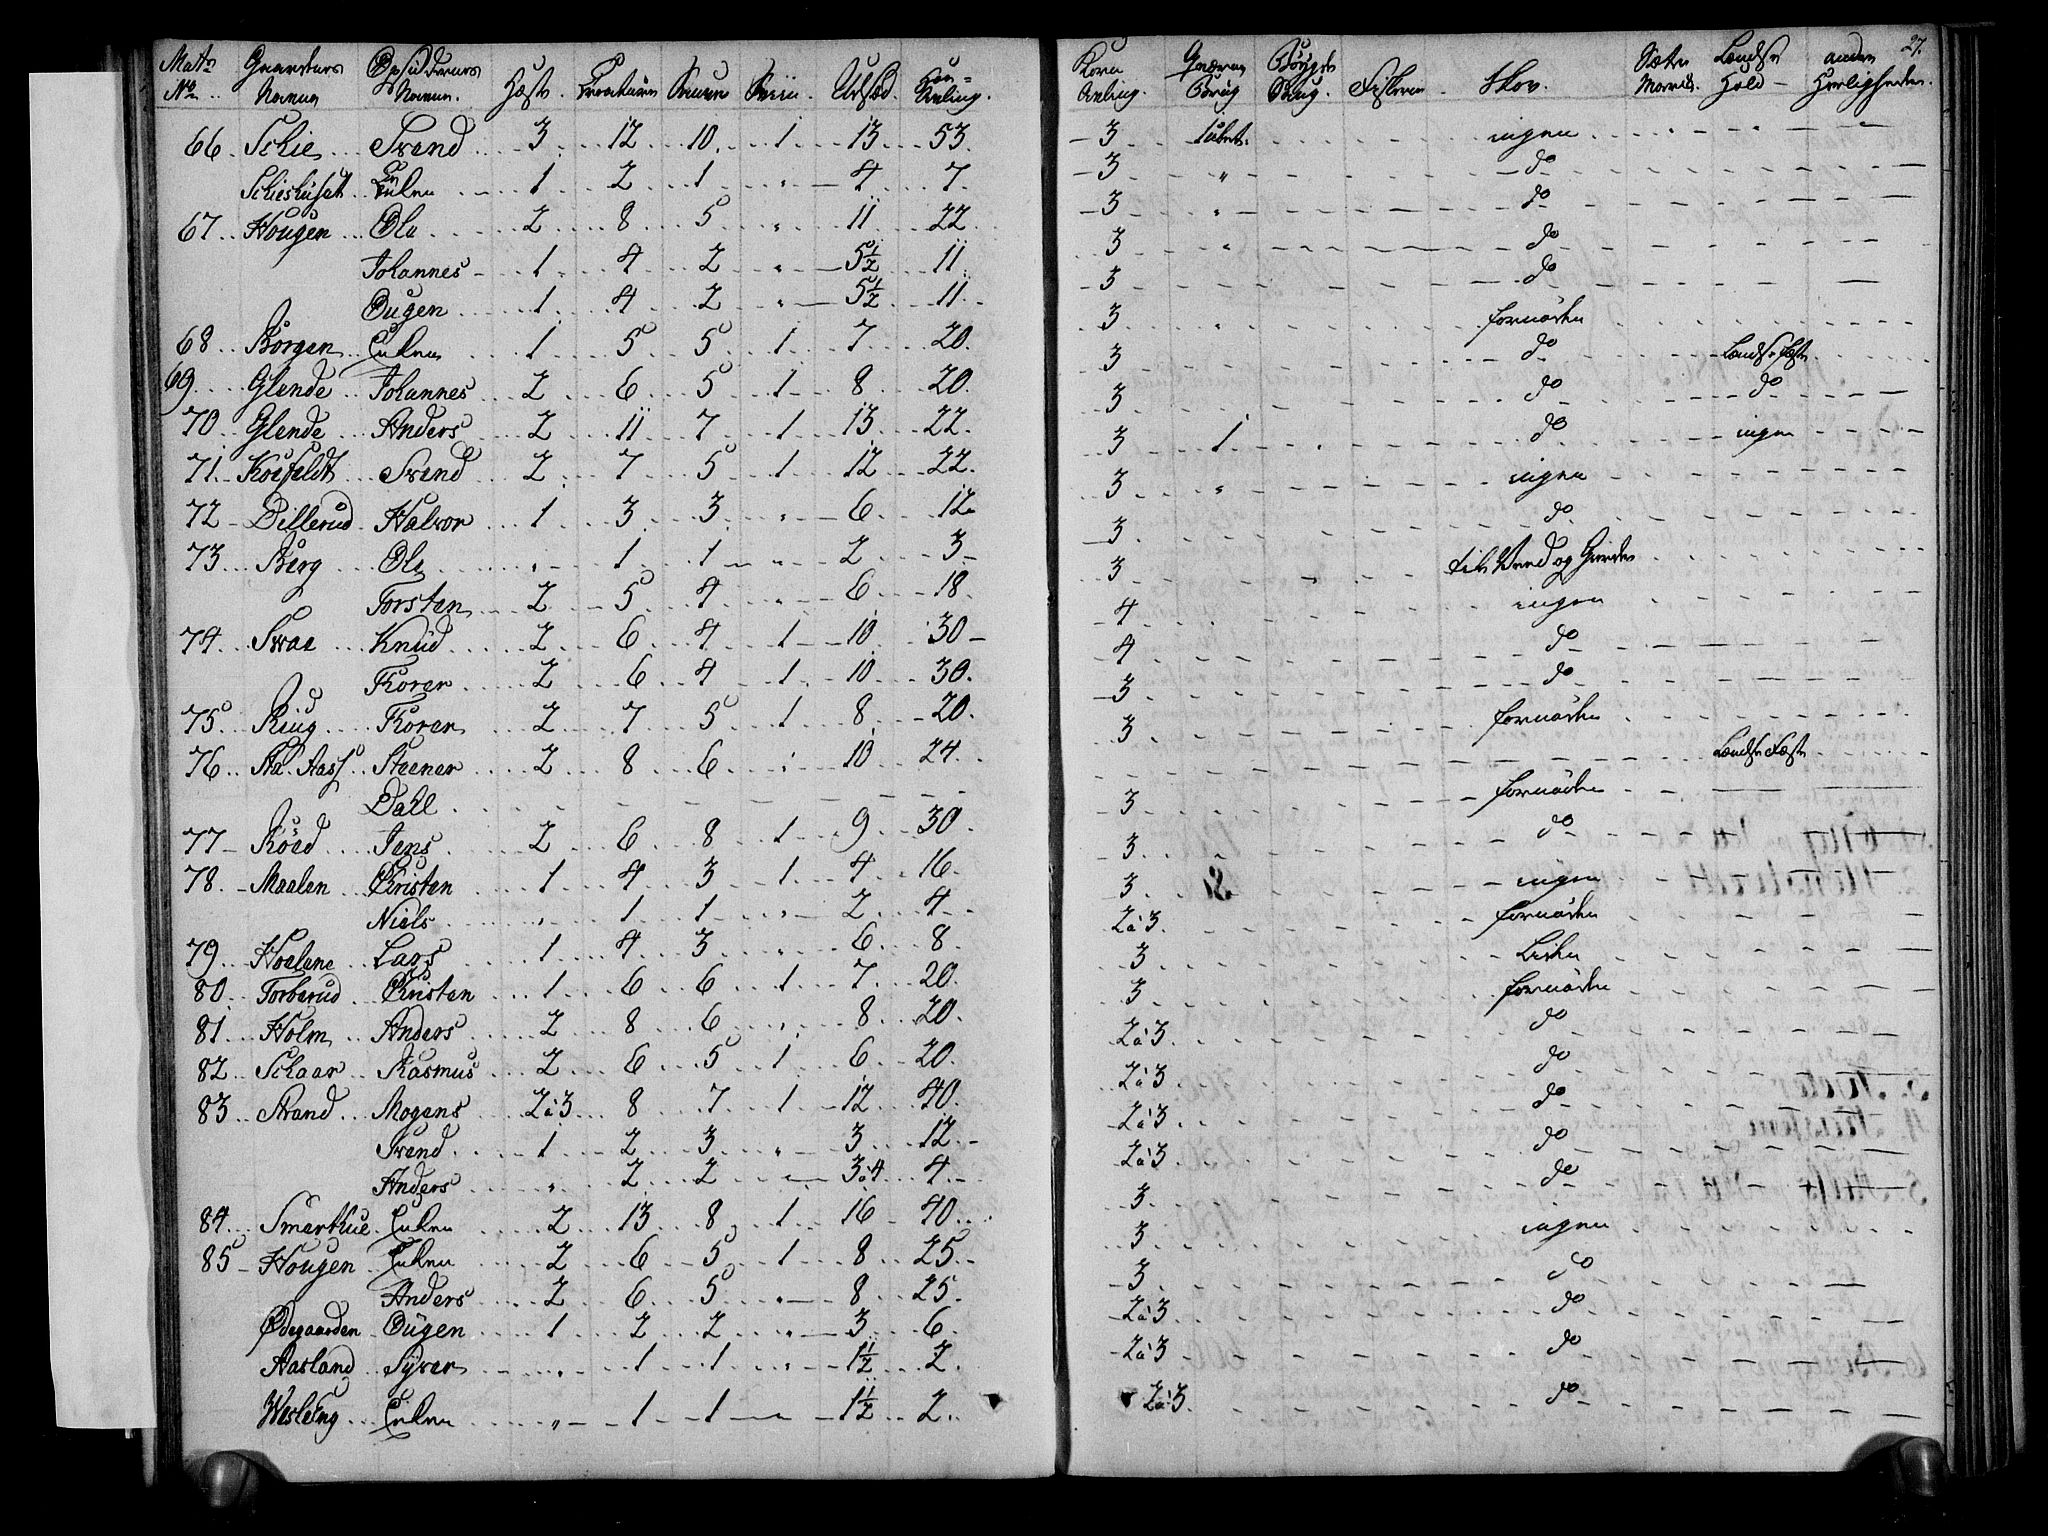 Mattr No Gaardenes Navne Opsidernes Navne. Hæste Creaturer Souer Sviin Udsæd. Høe-Avling.
66. Schie Svend 3 12 10 1 13 53.
Schieshuset Enken 1 2 1 " 4 7.
67 Hougen Ole 2 8 5 " 11 22
Johannes 1 4 2 " 5½ 11
Ougen 1 4 2 " 5½ 11
68 Borgen Enken 1 5 5 1 7 20.
69 Glende Johannes 2 6 5 1 8 20.
70 Glende Anders 2 11 7 1 13 22.
71 Kosfeldt Svend 2 7 5 1 12 22.
72 Dillerud Halvor 1 3 3 " 6 12
73 Berg Ole " 1 1 " 2 3
Torsten 2 5 4 " 6 18.
74 Svae Knüd 2 6 4 1 10 30
Thorer 2 6 4 1 10 30.
75 Ring Thoren 2 7 5 1 8 20.
76 Ad. Aass Steener 2 8 6 " 10 24
Dahl
77 Röed Jens 2 6 8 1 9 30
78 Maalen Christen 1 4 3 1 4 16
Niels " 1 1 " 2 4
79 Hoelene Lars 1 4 3 " 6 8
80 Torberud Christen 1 6 6 1 7 20
81 Holm Anders 2 8 6 " 8 20
82 Schaar Rasmus 2 6 5 1 6 20
83 Strand Mogens 2 à 3 8 7 1 12 40
Svend 1 2 3 " 3 12
Anders " 2 2 " 3 à 4 4
84 Smørhue Enken 2 13 8 1 16 40
85 Hougen Enken 2 6 5 1 8 25
Anders 2 6 5 " 8 25
Ødegaarden Ougen 1 2 2 " 3 6
Aasland Syver " 1 1 " 1½ 2
Wesleng Enken " 1 1 " 1½ 2
27.
Korn Avling. Qværne Brug Bøygde Brug. Fiskerie Skov. Sæter Havnes. Landse Hold andre Herligheder.
3 1 ingen
3 " do
3 " do
3 " do
3 do
3 " fornøden
3 do Landse Fæste
3 do do
3 1 do ingen
3 " ingen
3 do
3 til Brend og Gierder
4 ingen
4 do
3 do
3 fornøden
Landse Fæste
3 fornøden
3 do
3 ingen
2 à 3 fornøden
3 Liden
3 fornøden
2 à 3 do
2 à 3 do
2 à 3 do
2 à 3 do
3 do
3 ingen
3 do
2 à 3 do
2 à 3 do
2 à 3 do